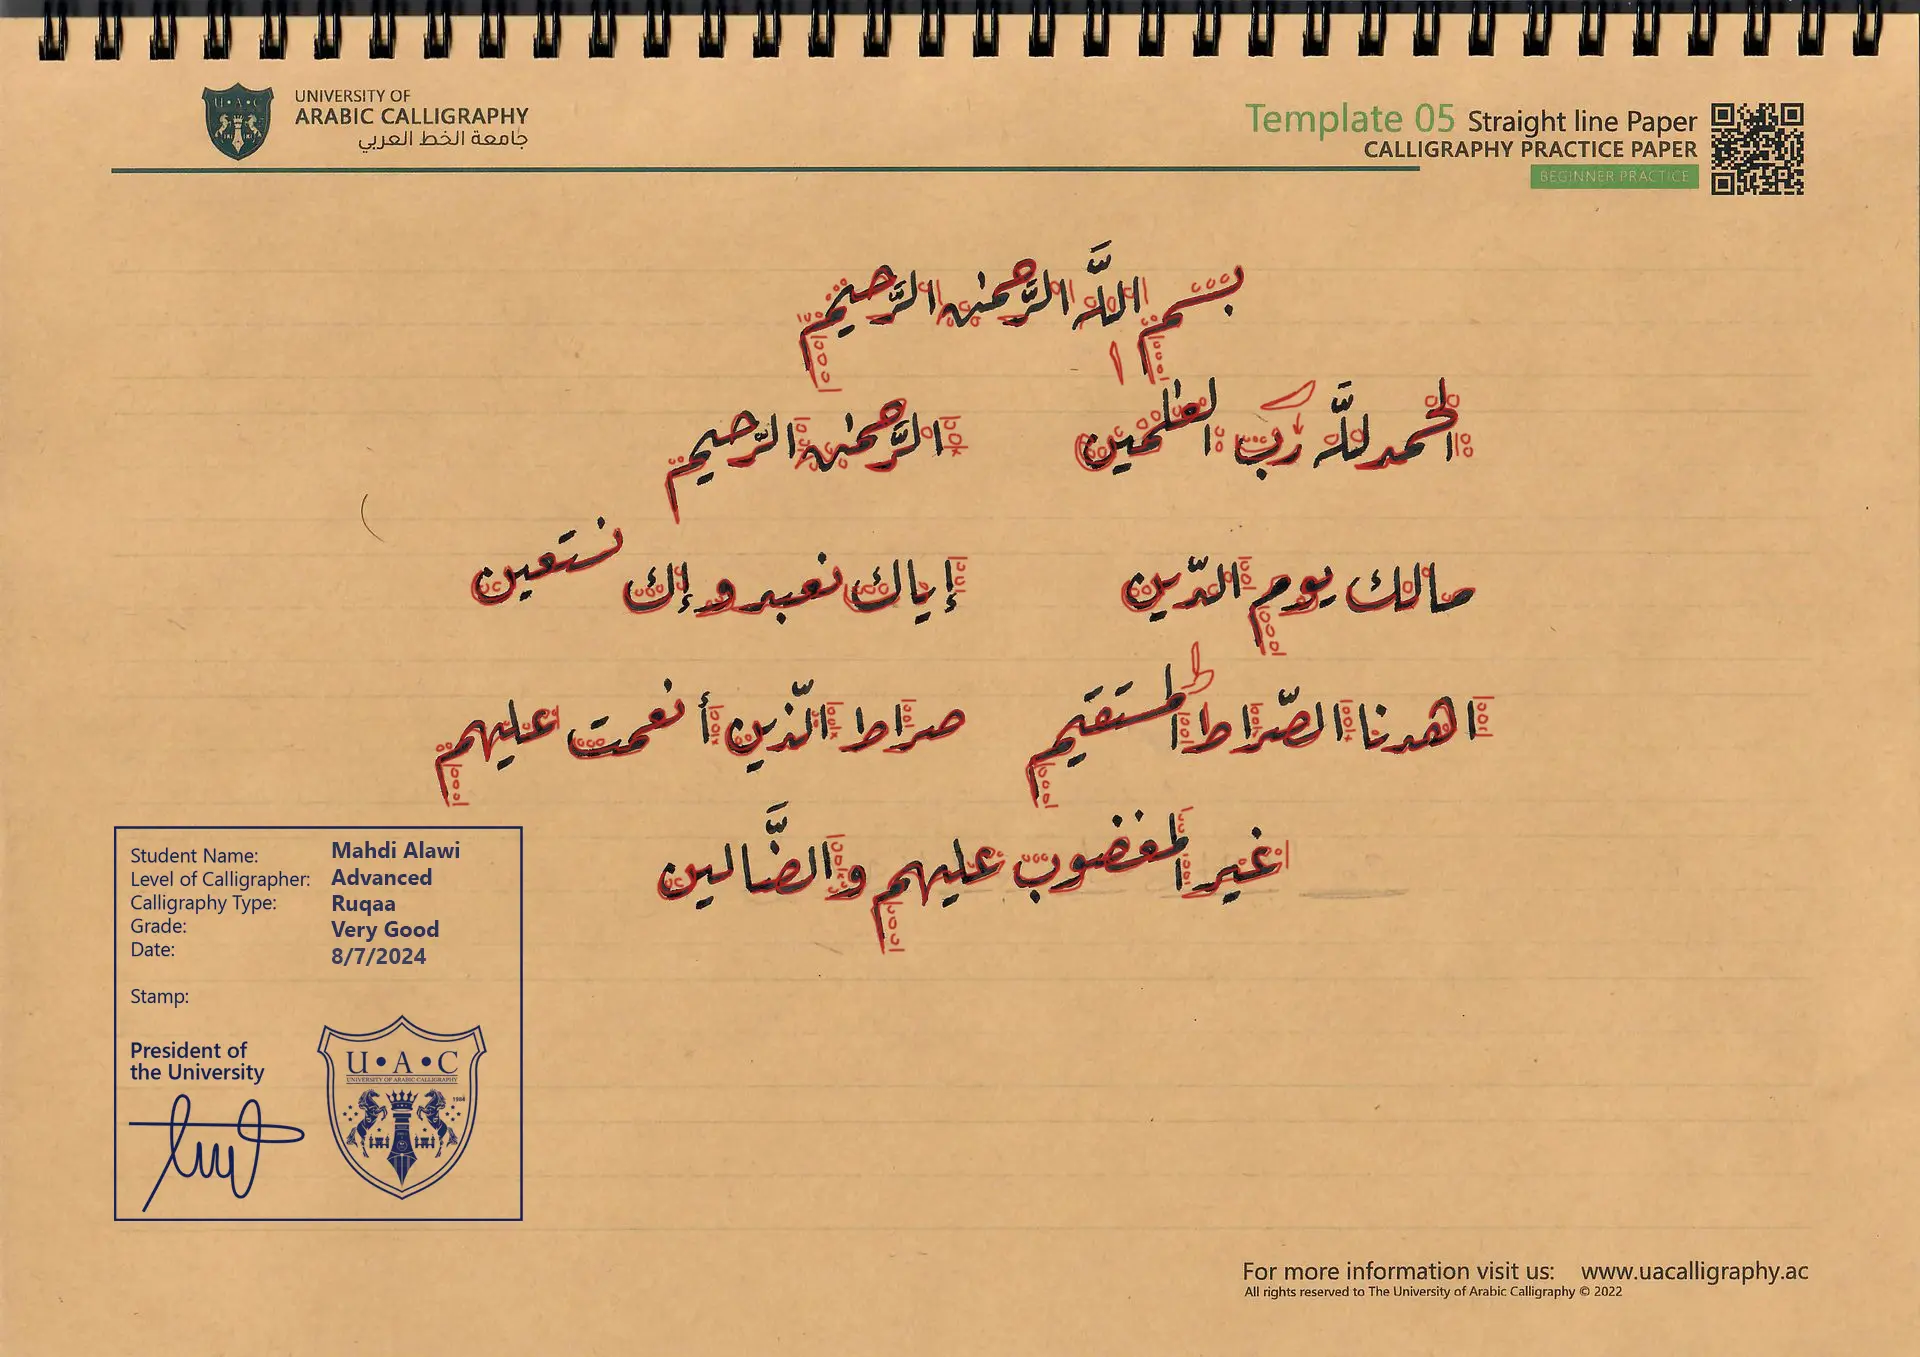 UNIVERSITY OF
ARABIC CALLIGRAPHY
جامعة الخط العربي
Template 05 Straight line Paper
CALLIGRAPHY PRACTICE PAPER
BEGINNER PRACTICE
بسم اللَّه الرَّحمٰن الرَّحيم
الحمد للَّه رب العٰلمين الرَّحمٰن الرَّحيم
مالك يوم الدّين إياك نعبد وإك نستعين
اهدنا الصّراط المستقيم صراط الّذين أنعمت عليهم
غير المغضوب عليهم والضَّالين
Student Name: Mahdi Alawi
Level of Calligrapher: Advanced
Calligraphy Type: Ruqaa
Grade: Very Good
Date: 8/7/2024
Stamp:
President of
the University
U•A•C
UNIVERSITY OF ARABIC CALLIGRAPHY
1984
For more information visit us: www.uacalligraphy.ac
All rights reserved to The University of Arabic Calligraphy © 2022